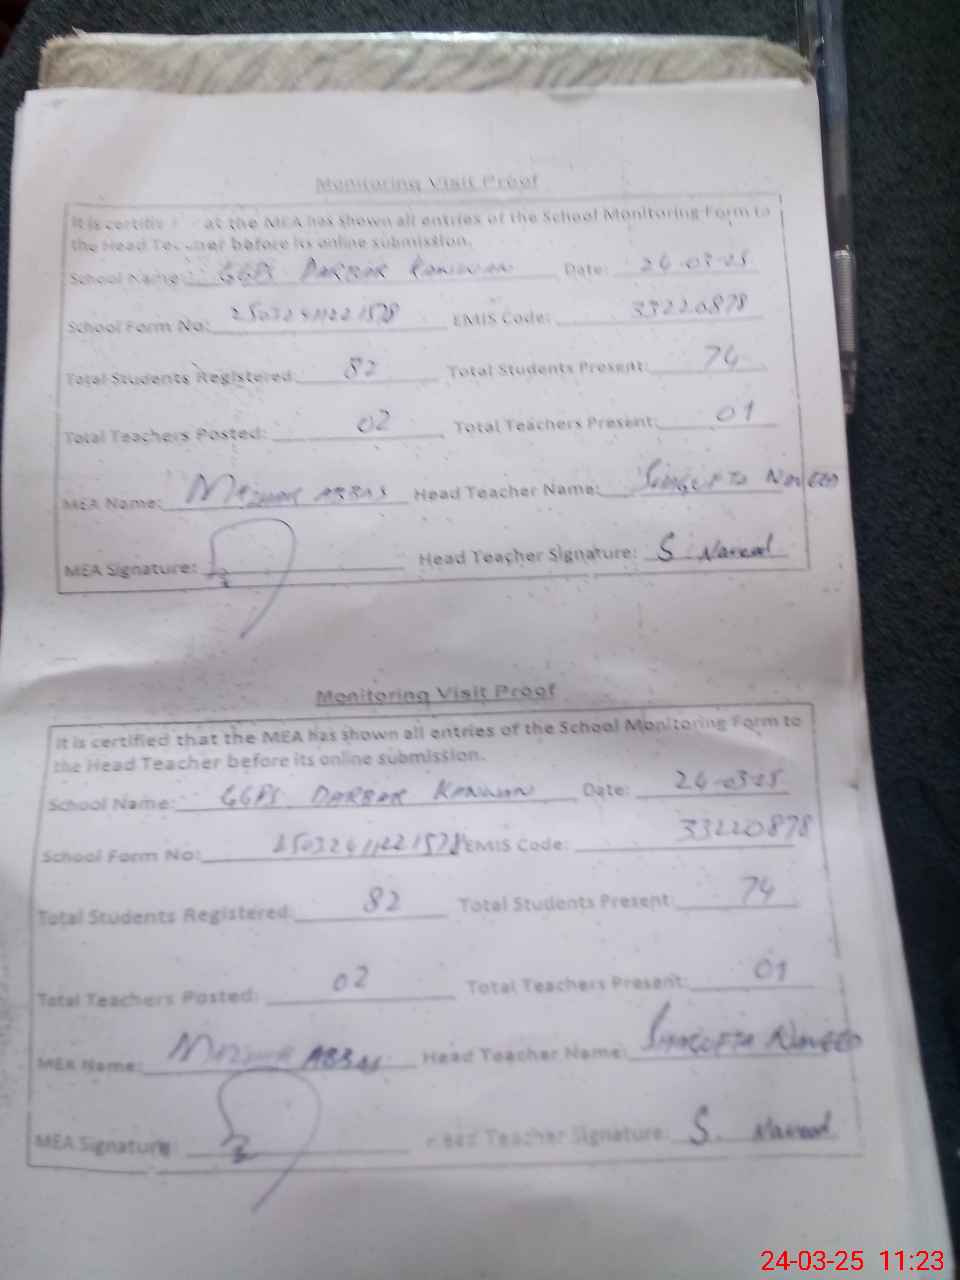 Monitoring Visit Proof
It is at the MEA has shown all entries of the School Monitoring Form to
the Head Teacher before its online submission.
School Name: GGPS DARBAR Date: 24-03-25
School Form No: EMIS Code: 33220878
Total Students Registered: 82 Total Students Present: 74
Total Teachers Posted: 02 Total Teachers Present: 01
MEA Name: MAZHAR ABBAS Head Teacher Name: SHAGUFTA NAVEED
MEA Signature: Head Teacher Signature: S. Naveed
Monitoring Visit Proof
It is certified that the MEA has shown all entries of the School Monitoring Form to
the Head Teacher before its online submission.
School Name: GGPS DARBAR Date: 24-03-25
School Form No: EMIS Code: 33220878
Total Students Registered: 82 Total Students Present: 74
Total Teachers Posted: 02 Total Teachers Present: 01
MEA Name: MAZHAR ABBAS Head Teacher Name: SHAGUFTA NAVEED
MEA Signature: Head Teacher Signature: S. Naveed
24-03-25 11:23